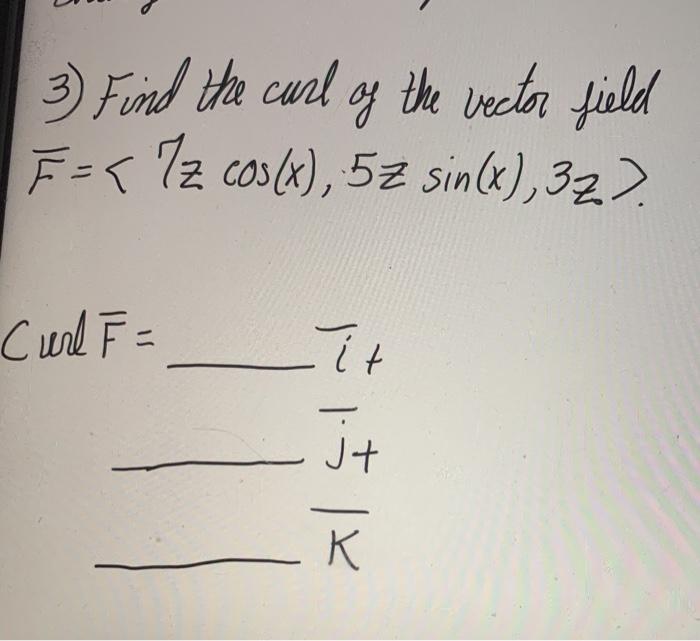 3) Find the curl of the vector field
F̅ = < 7z cos(x), 5z sin(x), 3z >.
Curl F̅ = ______ i̅ +
______ j̅ +
______ K̅